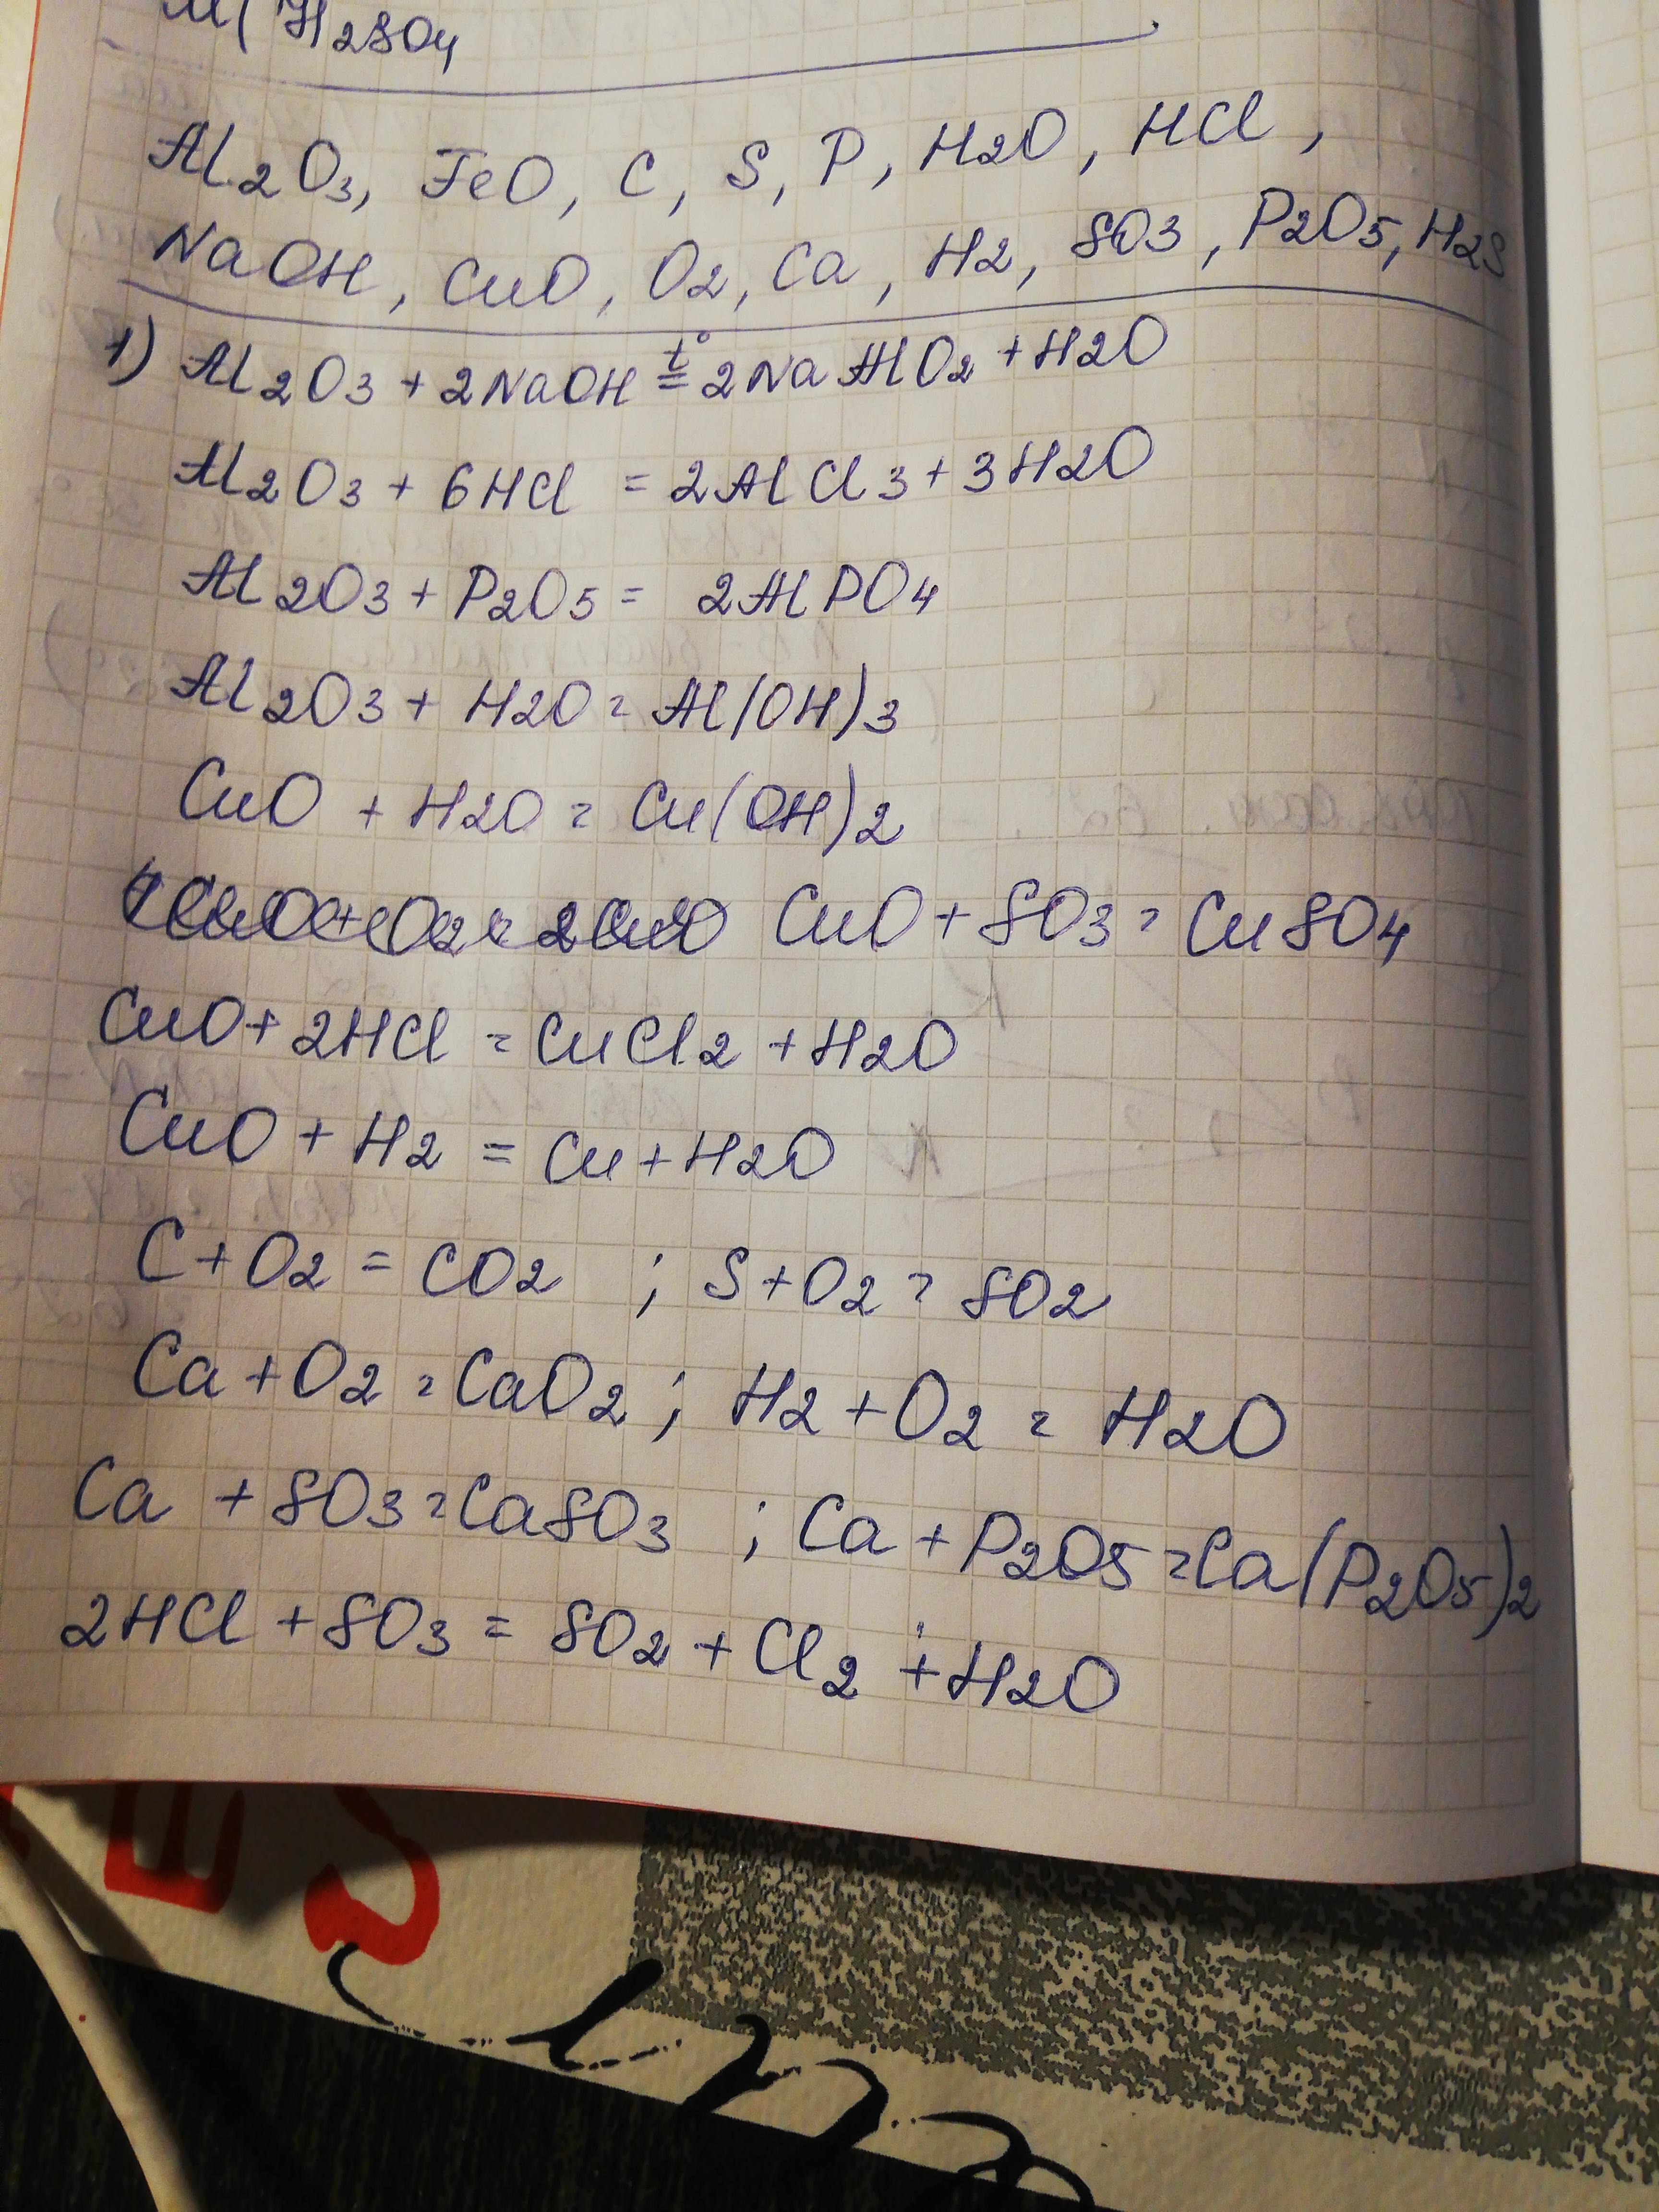 M(H2SO4
Al2O3, FeO, C, S, P, H2O, HCl,
NaOH, CuO, O2, Ca, H2, SO3, P2O5, H2S
1) Al2O3 + 2NaOH t°= 2NaAlO2 + H2O
Al2O3 + 6HCl = 2AlCl3 + 3H2O
Al2O3 + P2O5 = 2AlPO4
Al2O3 + H2O = Al(OH)3
CuO + H2O = Cu(OH)2
CuO + SO3 = CuSO4
CuO + 2HCl = CuCl2 + H2O
CuO + H2 = Cu + H2O
C + O2 = CO2 ; S + O2 = SO2
Ca + O2 = CaO2 ; H2 + O2 = H2O
Ca + SO3 = CaSO3 ; Ca + P2O5 = Ca(P2O5)2
2HCl + SO3 = SO2 + Cl2 + H2O